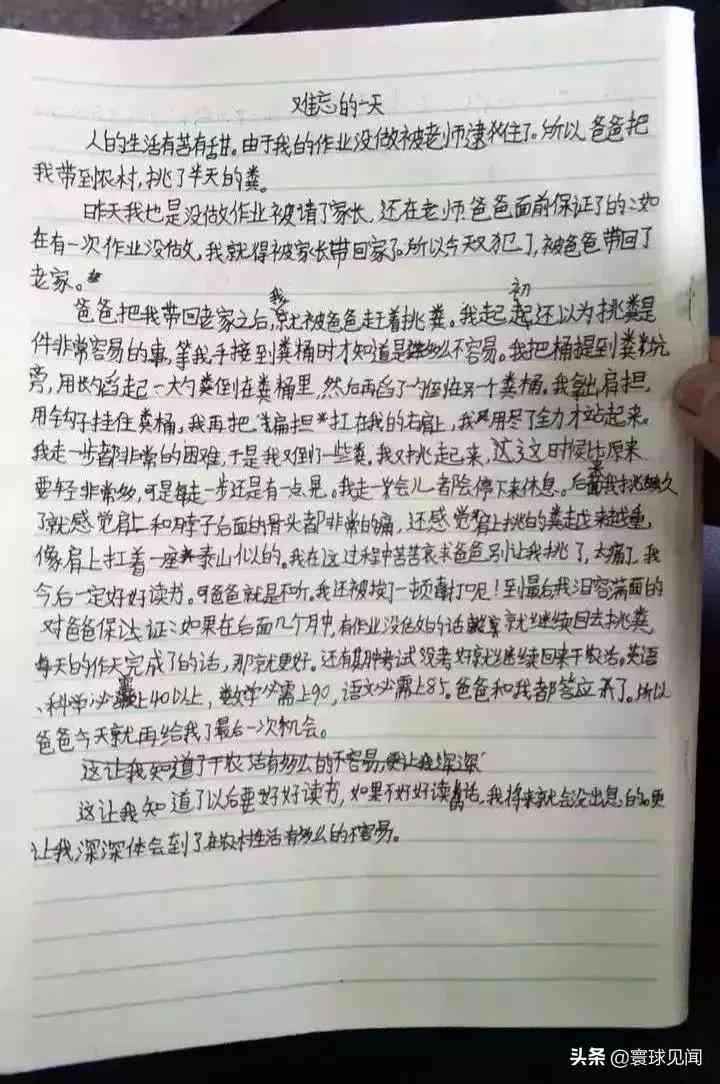 难忘的一天
人的生活有苦有甜。由于我的作业没做被老师逮住了。所以,爸爸把
我带到农村,挑了半天的粪。
昨天我也是没做作业被请了家长,还在老师.爸爸面前保证了的:如
在有一次作业没做,我就得被家长带回家了。所以今天又犯了,被爸爸带回了
老家。
爸爸把我带回老家之后,我就被爸爸赶着挑粪。我起初还以为挑粪是
件非常容易的事,等我手接到粪桶时才知道是多么不容易。我把桶提到粪坑
旁,用勺舀起一大勺粪倒在粪桶里,然后再舀了一勺倒在另一个粪桶。我拿出肩担,
用钩子挂住粪桶。我再把扁担扛在我的右肩上,我用尽了全力才站起来。
我走一步都非常的困难,于是我又倒了一些粪。我又挑起来,这时候比原来
要轻非常多,可是每走一步还是有一点晃。我走一会儿都会停下来休息。后面我挑久
了就感觉肩上和脖子后面的骨头都非常的痛,还感觉肩上挑的粪越来越重,
像肩上扛着一座泰山似的。我在这过程中苦苦哀求爸爸别让我挑了,太痛了,我
今后一定好好读书。可爸爸就是不听。我还被挨了一顿毒打呢!到最后我泪容满面的
对爸爸保证:如果在后面几个月中,有作业没做的话就继续回去挑粪,
每天的作天完成了的话,那就更好。还有期中考试没考好就继续回来干农活。英语
、科学必需上40以上,数学必需上90,语文必需上85。爸爸和我都答应了。所以
爸爸今天就再给我了最后一次机会。
这让我知道了干农活有多么的不容易,更让我深深
这让我知道了以后要好好读书,如果不好好读书的话,我将来就会没出息的。更
让我深深体会到了在农村生活有多么的不容易。
头条 @寰球见闻